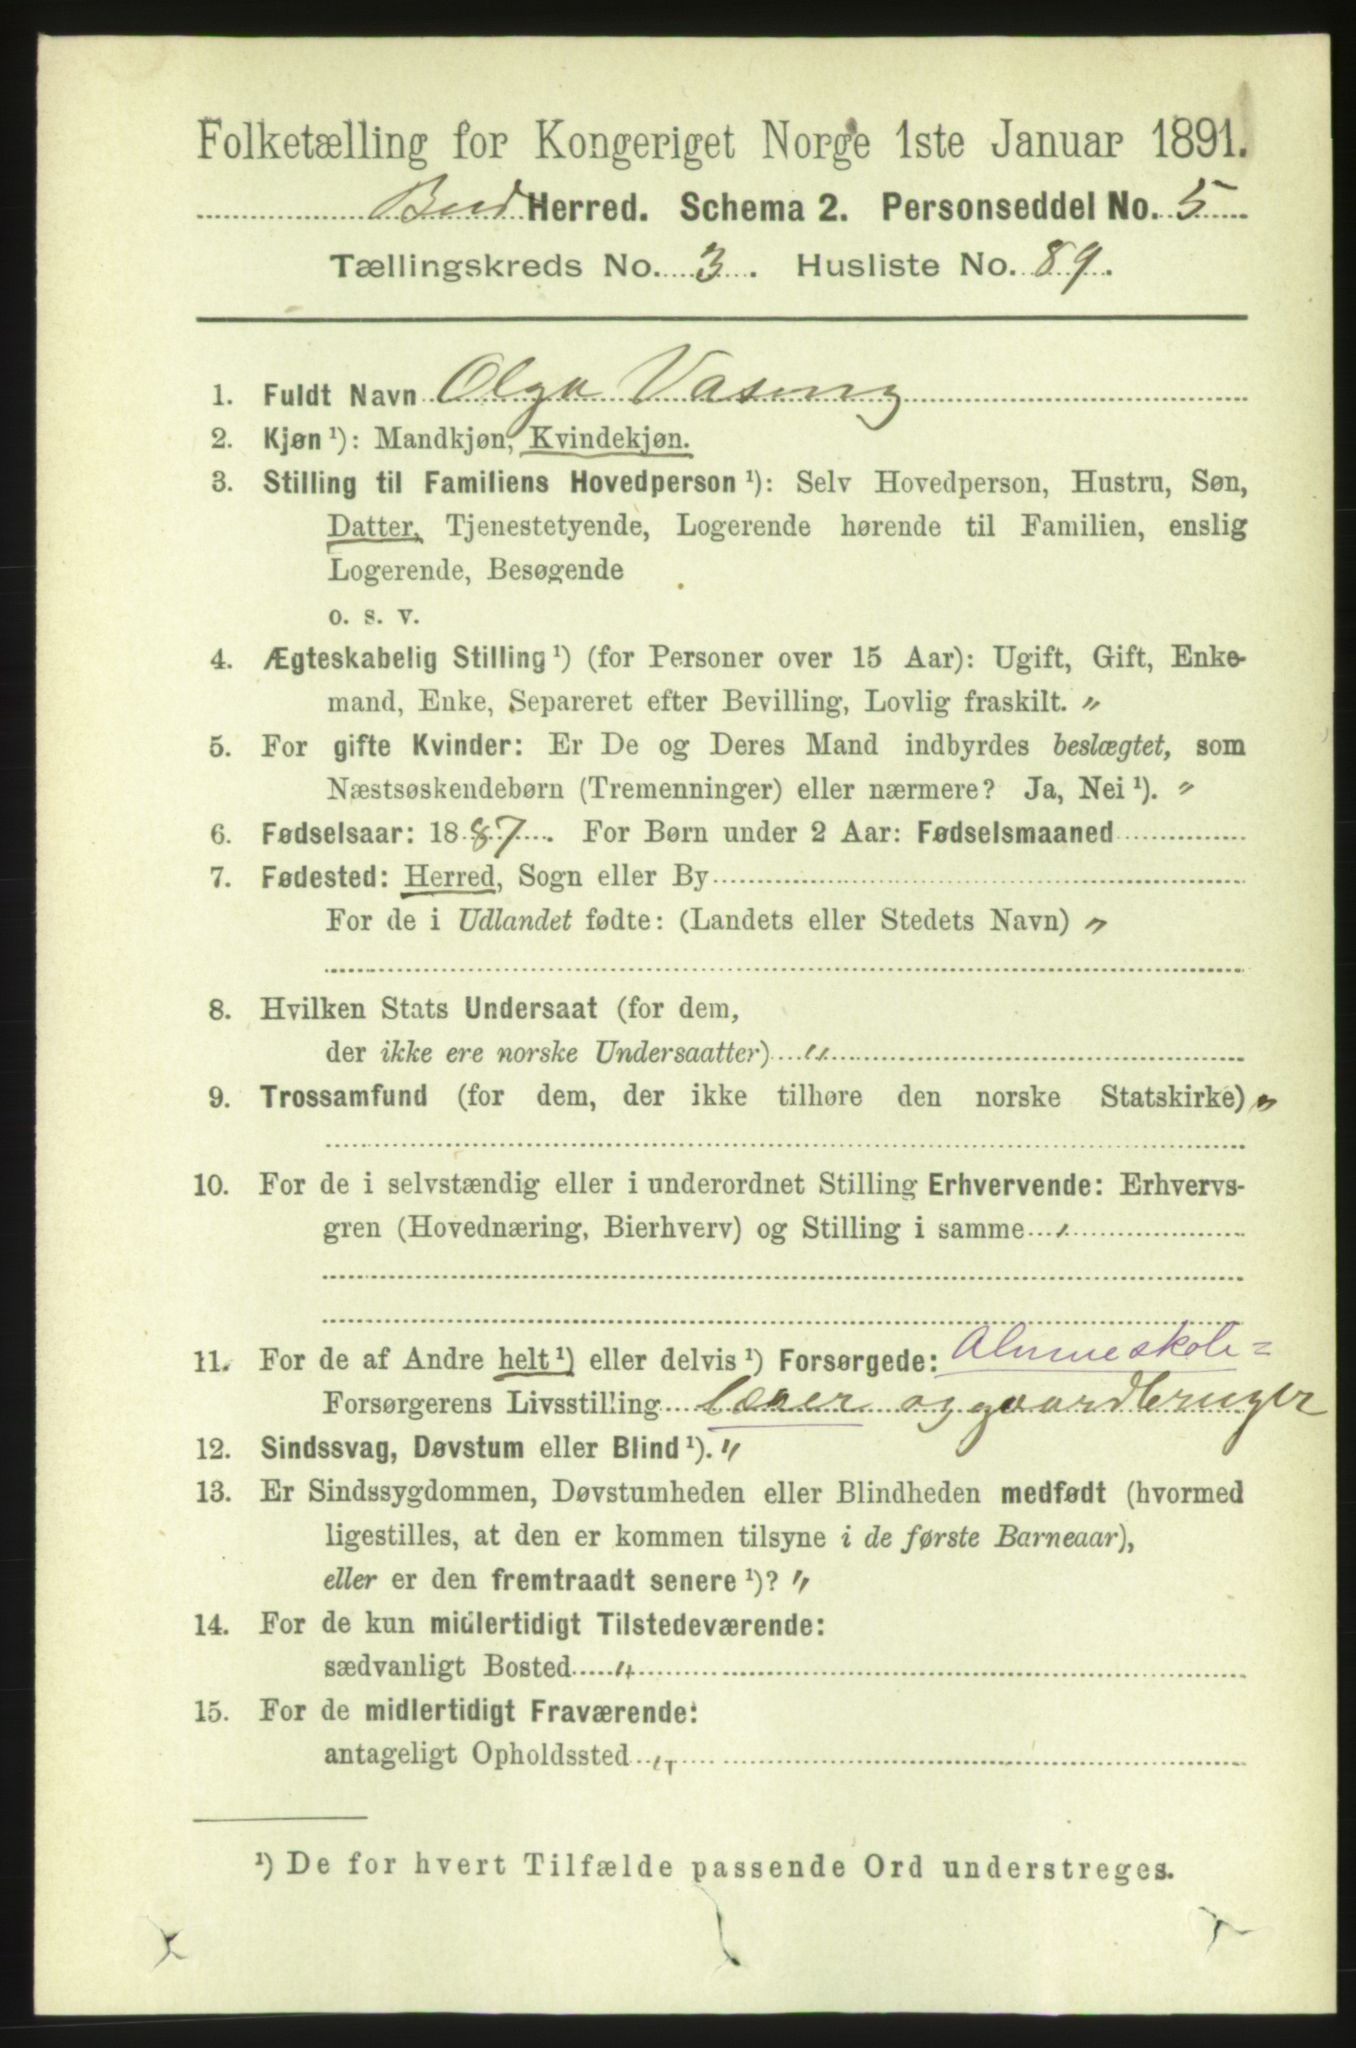 Folketælling for Kongeriget Norge 1ste Januar 1891.
Bud Herred. Schema 2. Personseddel No. 5
Tællingskreds No. 3. Husliste No. 89.
1. Fuldt Navn Olga Vaseng
2. Kjøn ¹): Mandkjøn, Kvindekjøn.
3. Stilling til Familiens Hovedperson ¹): Selv Hovedperson, Hustru, Søn,
Datter, Tjenestetyende, Logerende hørende til Familien, enslig
Logerende, Besøgende
o. s. v.
4. Ægteskabelig Stilling ¹) (for Personer over 15 Aar): Ugift, Gift, Enke-
mand, Enke, Separeret efter Bevilling, Lovlig fraskilt. "
5. For gifte Kvinder: Er De og Deres Mand indbyrdes beslægtet, som
Næstsøskendebørn (Tremenninger) eller nærmere? Ja, Nei ¹). "
6. Fødselsaar: 1887. For Børn under 2 Aar: Fødselsmaaned
7. Fødested: Herred, Sogn eller By
For de i Udlandet fødte: (Landets eller Stedets Navn) "
8. Hvilken Stats Undersaat (for dem,
der ikke ere norske Undersaatter) "
9. Trossamfund (for dem, der ikke tilhøre den norske Statskirke) "
10. For de i selvstændig eller i underordnet Stilling Erhvervende: Erhvervs-
gren (Hovednæring, Bierhverv) og Stilling i samme "
11. For de af Andre helt ¹) eller delvis ¹) Forsørgede: Almueskole=
Forsørgerens Livsstilling Lærer og gaardbruger
12. Sindssvag, Døvstum eller Blind ¹). "
13. Er Sindssygdommen, Døvstumheden eller Blindheden medfødt (hvormed
ligestilles, at den er kommen tilsyne i de første Barneaar),
eller er den fremtraadt senere ¹)? "
14. For de kun midlertidigt Tilstedeværende:
sædvanligt Bosted "
15. For de midlertidigt Fraværende:
antageligt Opholdssted "
¹) De for hvert Tilfælde passende Ord understreges.